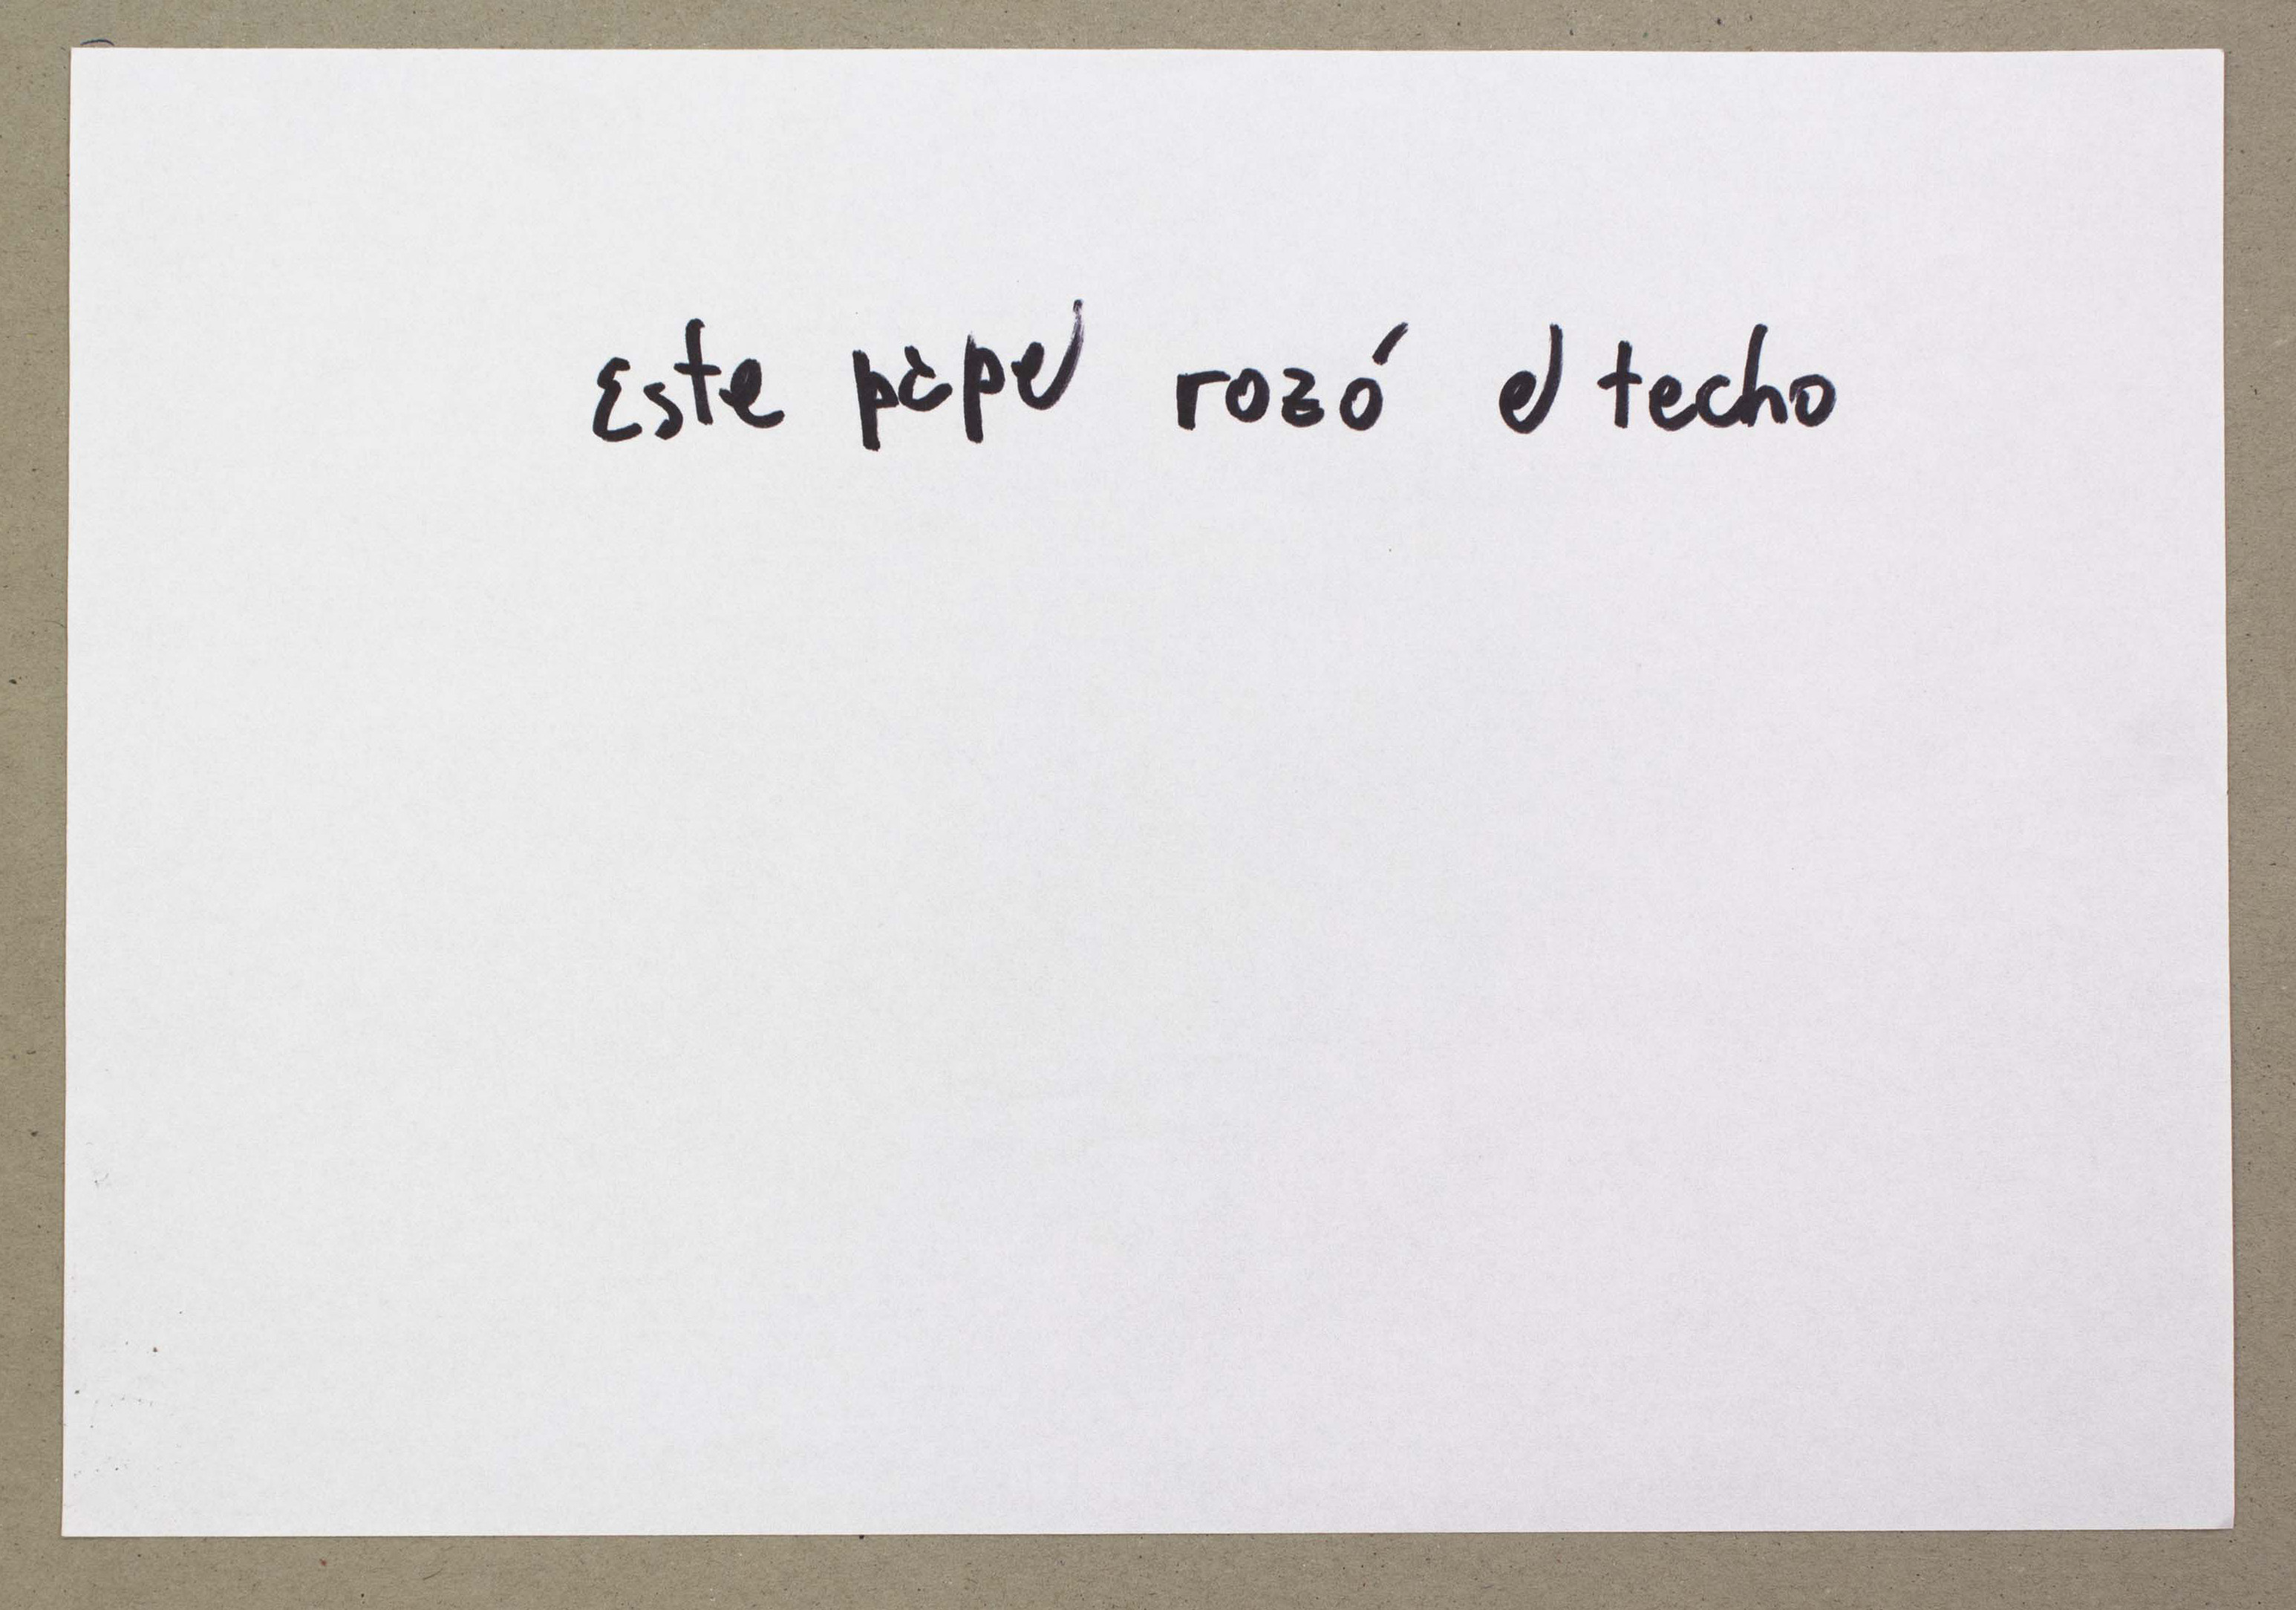 Este papel rozó el techo